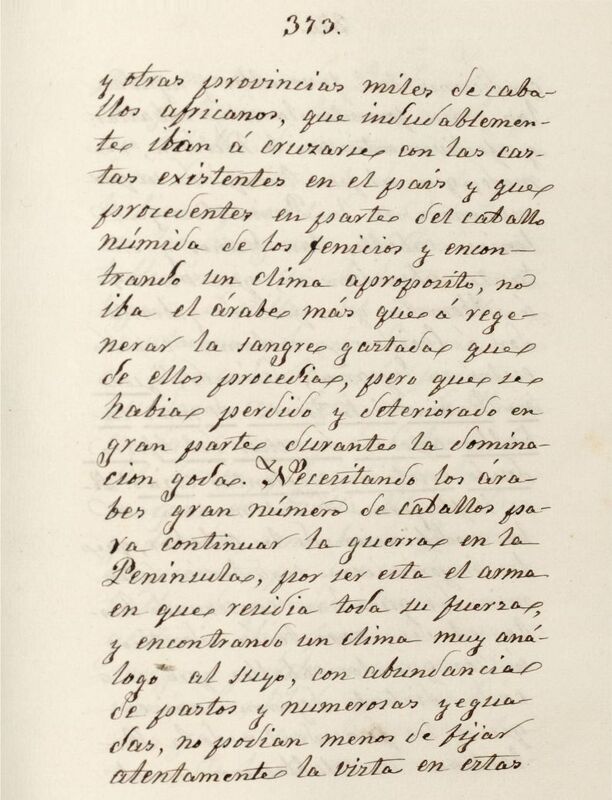 373.
y otras provincias miles de caba-
llos africanos, que indudablemen-
te iban á cruzarse con las cas-
tas existentes en el pais y que
procedentes en parte del caballo
númida de los fenicios y encon-
trando un clima aproposito, no
iba el árabe más que á rege-
nerar la sangre gastada que
de ellos procedia, pero que se
habia perdido y deteriorado en
gran parte durante la domina-
cion goda. Necesitando los ára-
bes gran número de caballos pa-
ra continuar la guerra en la
Peninsula, por ser esta el arma
en que residia toda su fuerza,
y encontrando un clima muy aná-
logo al suyo, con abundancia
de pastos y numerosas yegua-
das, no podian menos de fijar
atentamente la vista en estas